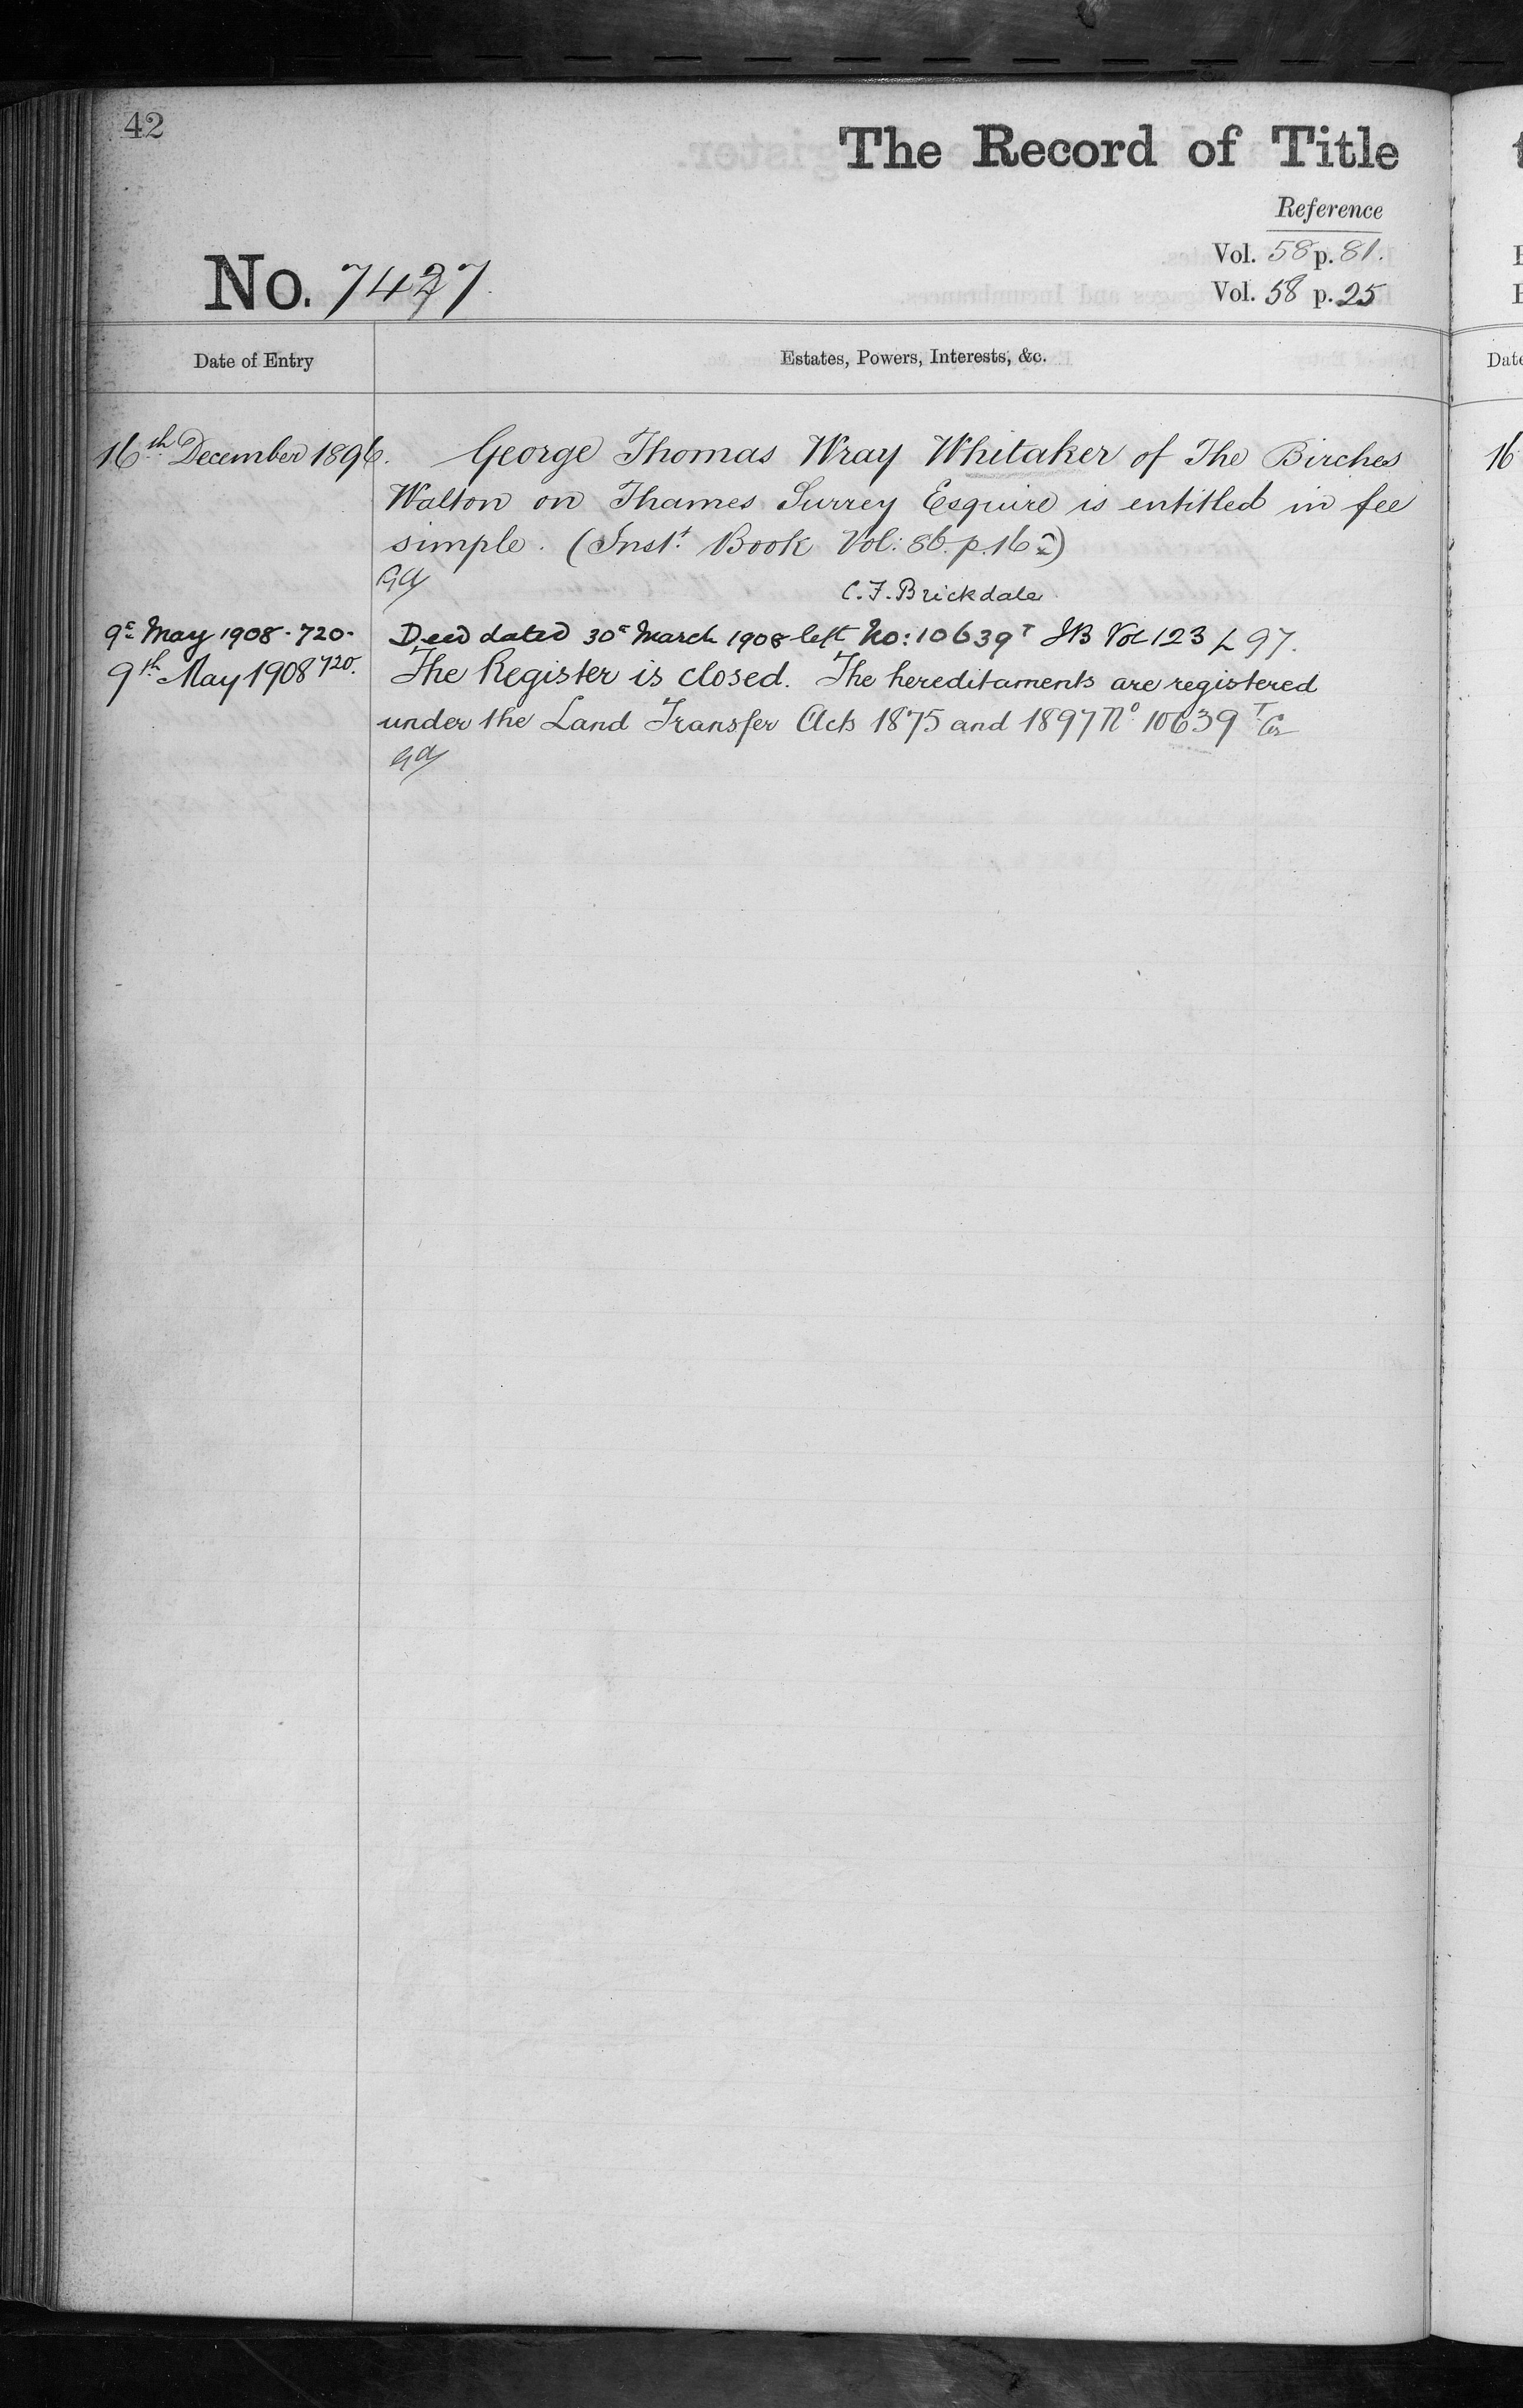 42
The Record of Title
Reference
Vol. 58 p. 81.
No. 7427.
Vol. 58 p. 25
Date of Entry
Estates, Powers, Interests, &c.
Date
16th December 1896. George Thomas Wray Whitaker of The Birches
16
Walton on Thames Surrey Esquire is entitled in fee
simple. (Inst. Book Vol: 86. p. 16)
C. F. Brickdale.
9 May 1908 - 720 - Deed dated 30 March 1908 left No: 10639 T IB Vol 123 97.
9th May 1908 720. The Register is closed. The hereditaments are registered
under the Land Transfer Acts 1875 and 1897 No 10639 T